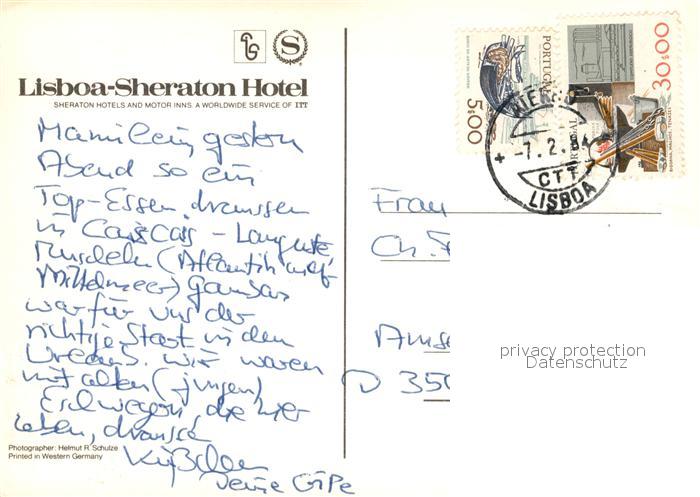 Lisboa-Sheraton Hotel
SHERATON HOTELS AND MOTOR INNS. A WORLDWIDE SERVICE OF ITT
Mamilein, gestern
Abend so ein
Top-Essen draussen
in Cascais - Languste,
Muscheln (Atlantik
Mittelmeer) Gambas
war für uns der
richtige Start in den
Urlaub. wir waren
mit alten (jungen)
Eschwegern, die hier
leben, draussen
Küßchen
Deine
Photographer: Helmut R. Schulze
Printed in Western Germany
S
PORTUGAL
5$00
PORTUGAL
30$00
-7.2.84
CTT
LISBOA
Frau
Ch.
D 350
privacy protection
Datenschutz